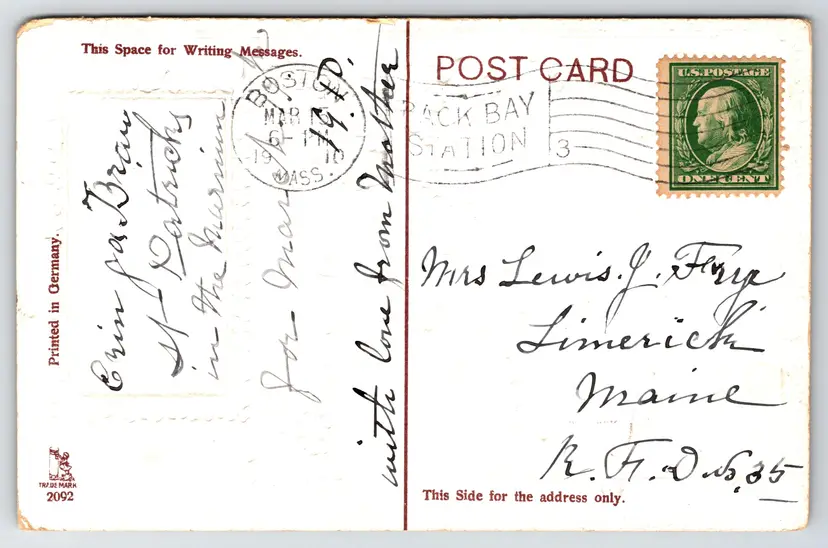 This Space for Writing Messages.
POST CARD
U.S. POSTAGE
ONE CENT
BOSTON
MAR 1
6-1 PM
19 10
MASS.
BACK BAY
STATION
3
Erin go Brau
St Patricks
in the
for Mar
1910.
with love from Mother
Printed in Germany.
Mrs Lewis. J. Frye
Limerick
Maine
R. F. D. No. 35
TRADE MARK
2092
This Side for the address only.